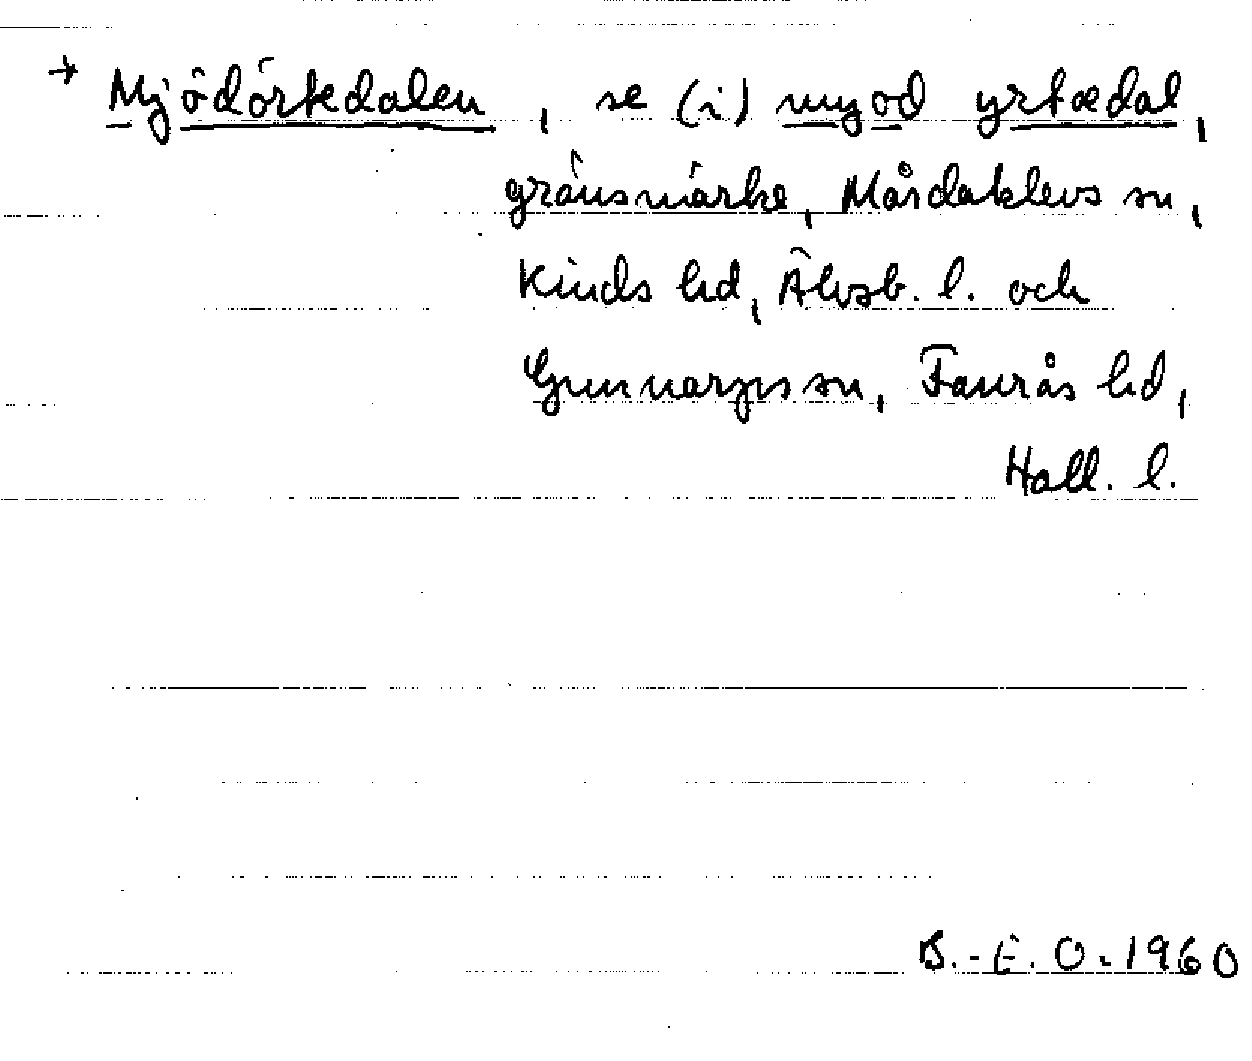 + Mjödörtedalen, se (i) myod yrtædal,
gränsmärke, Mårdaklevs sn,
Kinds hd, Älvsb. l. och
Gunnarps sn, Faurås hd,
Hall. l.
B.-E. O. 1960